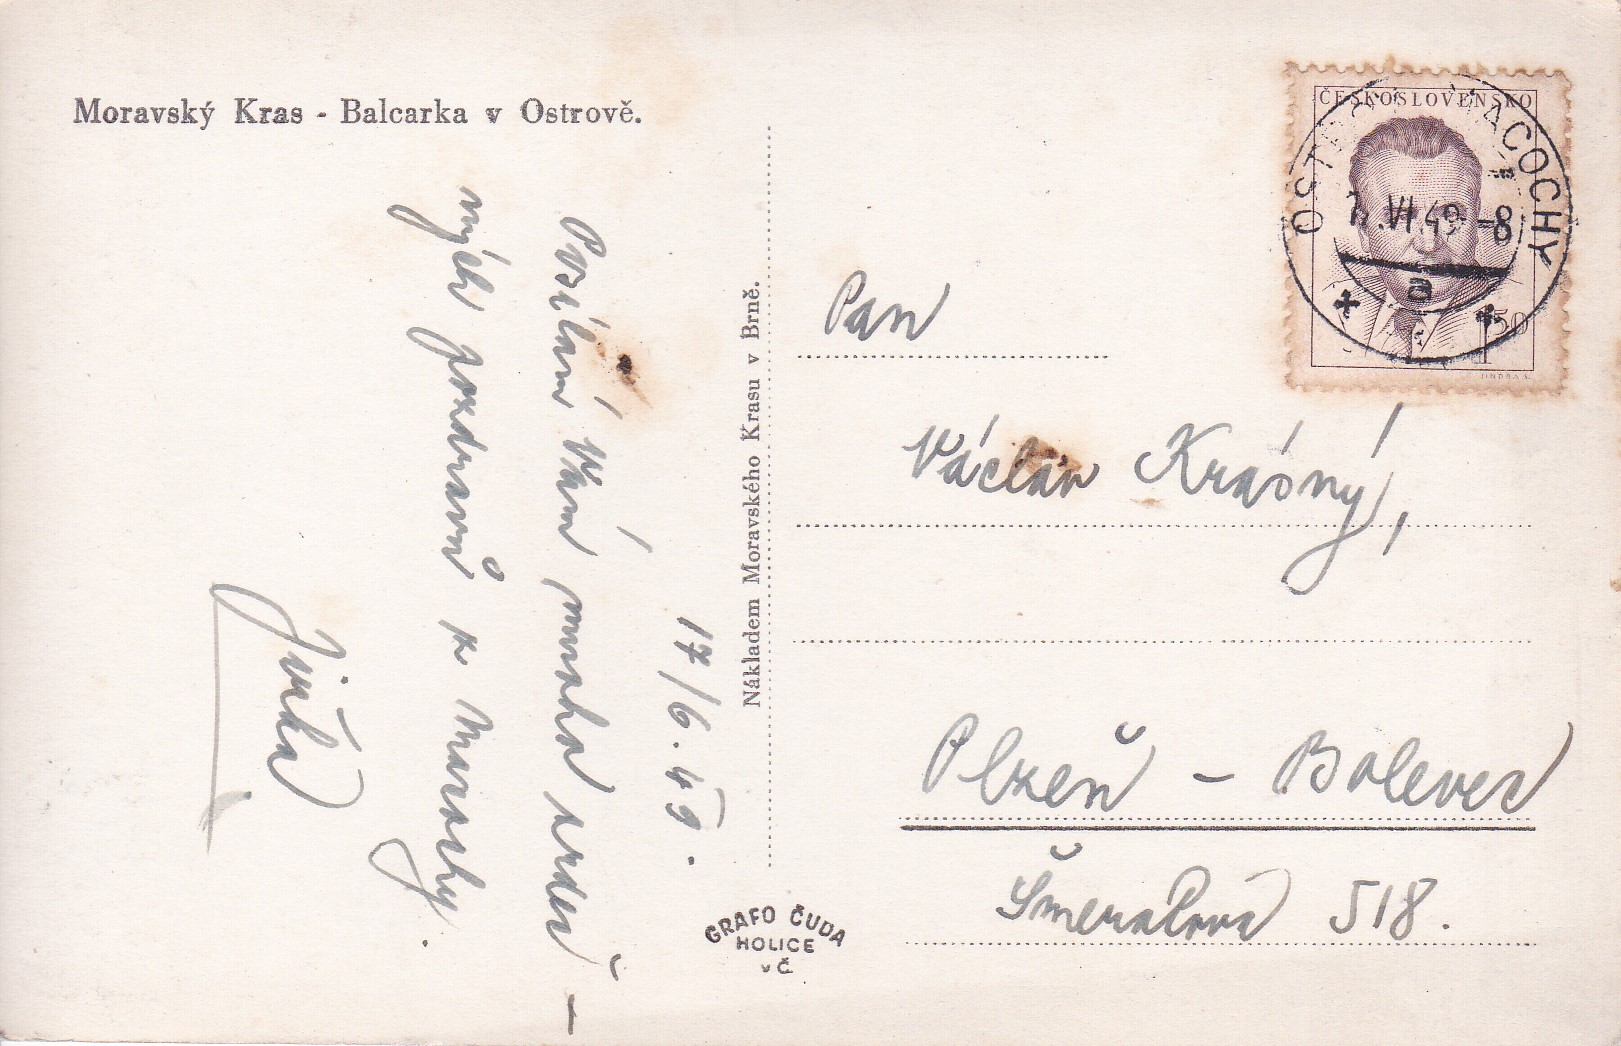 Moravský Kras - Balcarka v Ostrově.
17/6.49.
Posílám Vám mnoho srdeč-
ných pozdravů z Macochy.
Jirka
Nákladem Moravského Krasu v Brně.
GRAFO ČUDA
HOLICE
v Č.
ČESKOSLOVENSKO
1.50
OSTROV MACOCHY
VI.49-8
a
Pan
Václav Krásný,
Plzeň - Bolevec
Šmeralova 518.